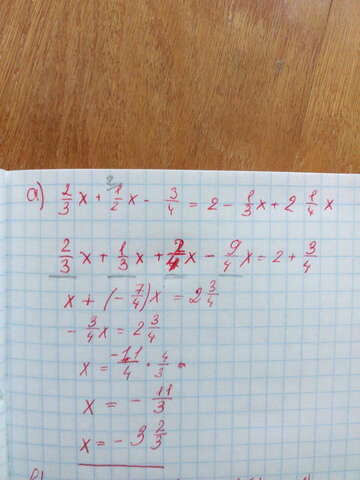 a) 2/3 x + 1/2 x - 3/4 = 2 - 1/3 x + 2 1/4 x
2/3 x + 1/3 x + 2/4 x - 9/4 x = 2 + 3/4
x + (- 7/4) x = 2 3/4
- 3/4 x = 2 3/4
x = -11/4 · 4/3
x = - 11/3
x = - 3 2/3